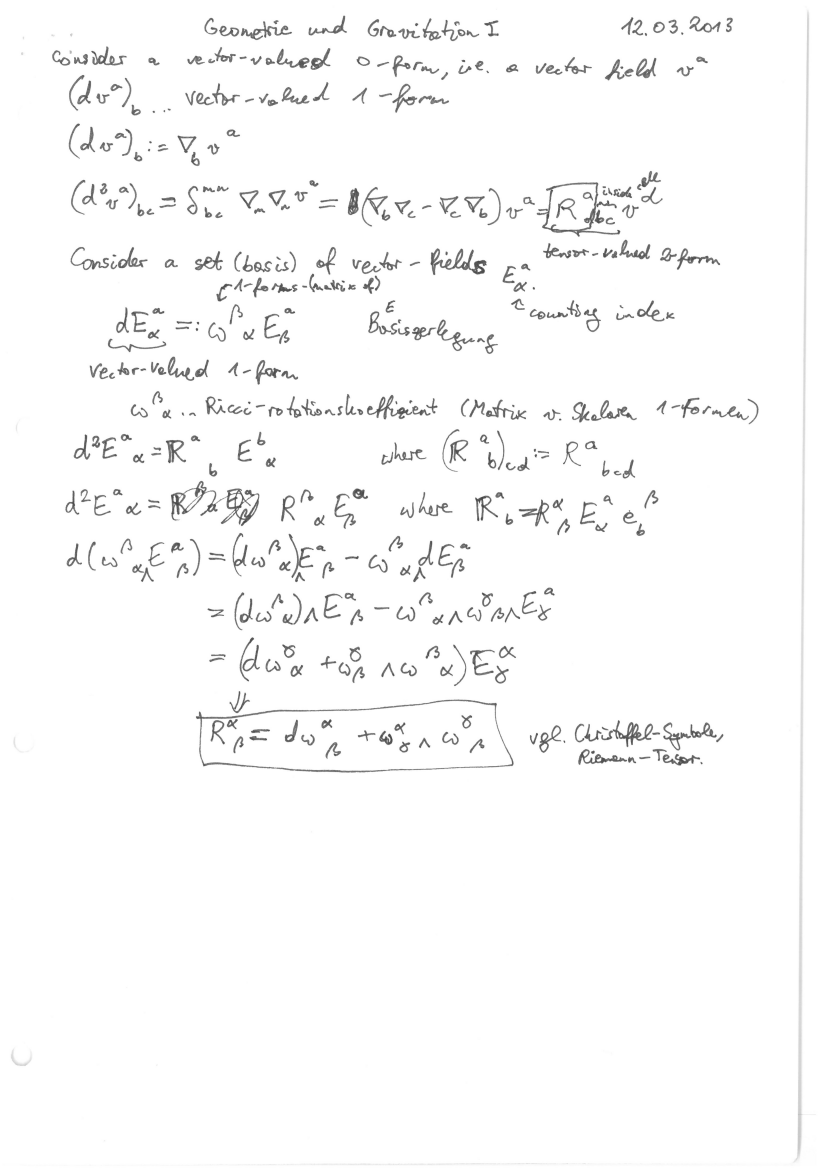 Geometrie und Gravitation I 12.03.2013
Consider a vector-valued 0-form, i.e. a vector field v^a
(dv^a)_b ... vector-valued 1-form
(dv^a)_b := ∇_b v^a
(d²v^a)_bc = δ^mn_bc ∇_m ∇_n v^a = (∇_b ∇_c - ∇_c ∇_b) v^a = R^a_dbc v^d
tensor-valued 2-form
Consider a set (basis) of vector-fields E^a_α.
1-forms-(matrix of)
↑ counting index
dE^a_α =: ω^β_α E^a_β Basiszerlegung
vector-valued 1-form
ω^β_α ... Ricci-rotationskoeffizient (Matrix v. Skalaren 1-Formen)
d²E^a_α = R^a_b E^b_α where (R^a_b)_cd := R^a_bcd
d²E^a_α = R^β_α E^a_β where R^a_b = R^α_β E^a_α e_b^β
d(ω^β_α ∧ E^a_β) = (dω^β_α) ∧ E^a_β - ω^β_α ∧ dE^a_β
= (dω^β_α) ∧ E^a_β - ω^β_α ∧ ω^γ_β ∧ E^a_γ
= (dω^γ_α + ω^γ_β ∧ ω^β_α) E^α_γ
⇓
R^α_β = dω^α_β + ω^α_γ ∧ ω^γ_β vgl. Christoffel-Symbole,
Riemann-Tensor.